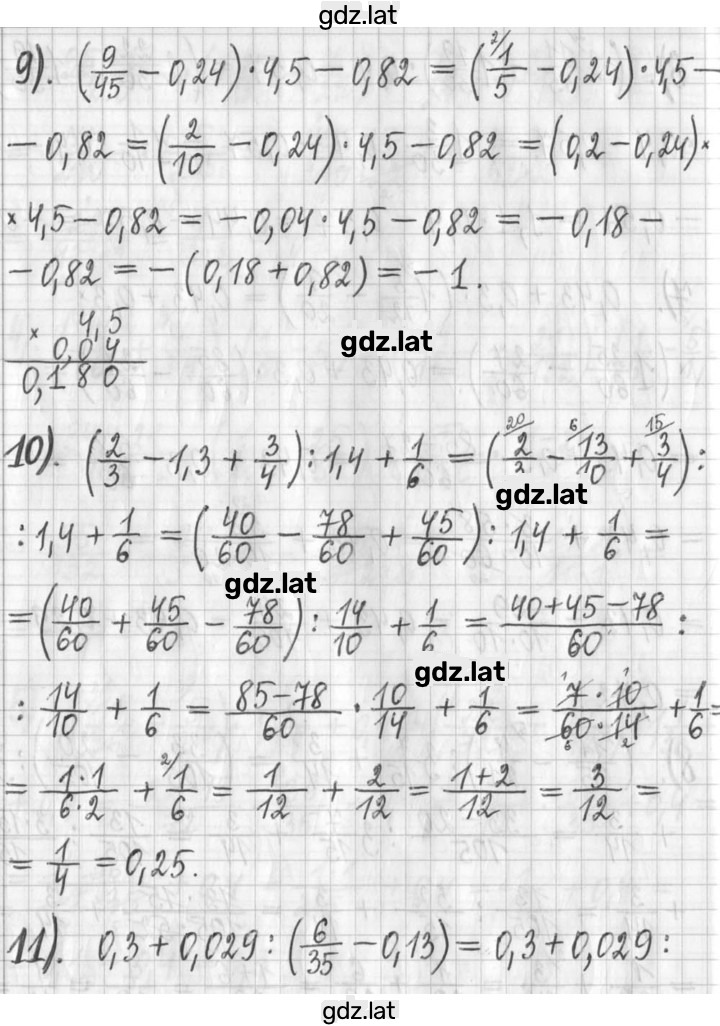 gdz.lat
9). (9/45 − 0,24) · 4,5 − 0,82 = (2/ 1/5 − 0,24) · 4,5 −
− 0,82 = (2/10 − 0,24) · 4,5 − 0,82 = (0,2 − 0,24) ×
× 4,5 − 0,82 = − 0,04 · 4,5 − 0,82 = − 0,18 −
− 0,82 = − (0,18 + 0,82) = − 1.
× 4,5
0,04
0,180
gdz.lat
10). (2/3 − 1,3 + 3/4) : 1,4 + 1/6 = (20/ 2/3 − 6/ 13/10 + 15/ 3/4) :
gdz.lat
: 1,4 + 1/6 = (40/60 − 78/60 + 45/60) : 1,4 + 1/6 =
gdz.lat
= (40/60 + 45/60 − 78/60) : 14/10 + 1/6 = 40+45−78/60 :
gdz.lat
: 14/10 + 1/6 = 85−78/60 · 10/14 + 1/6 = 7·10/60·14 + 1/6 =
= 1·1/6·2 + 2/ 1/6 = 1/12 + 2/12 = 1+2/12 = 3/12 =
= 1/4 = 0,25.
11). 0,3 + 0,029 : (6/35 − 0,13) = 0,3 + 0,029 :
gdz.lat